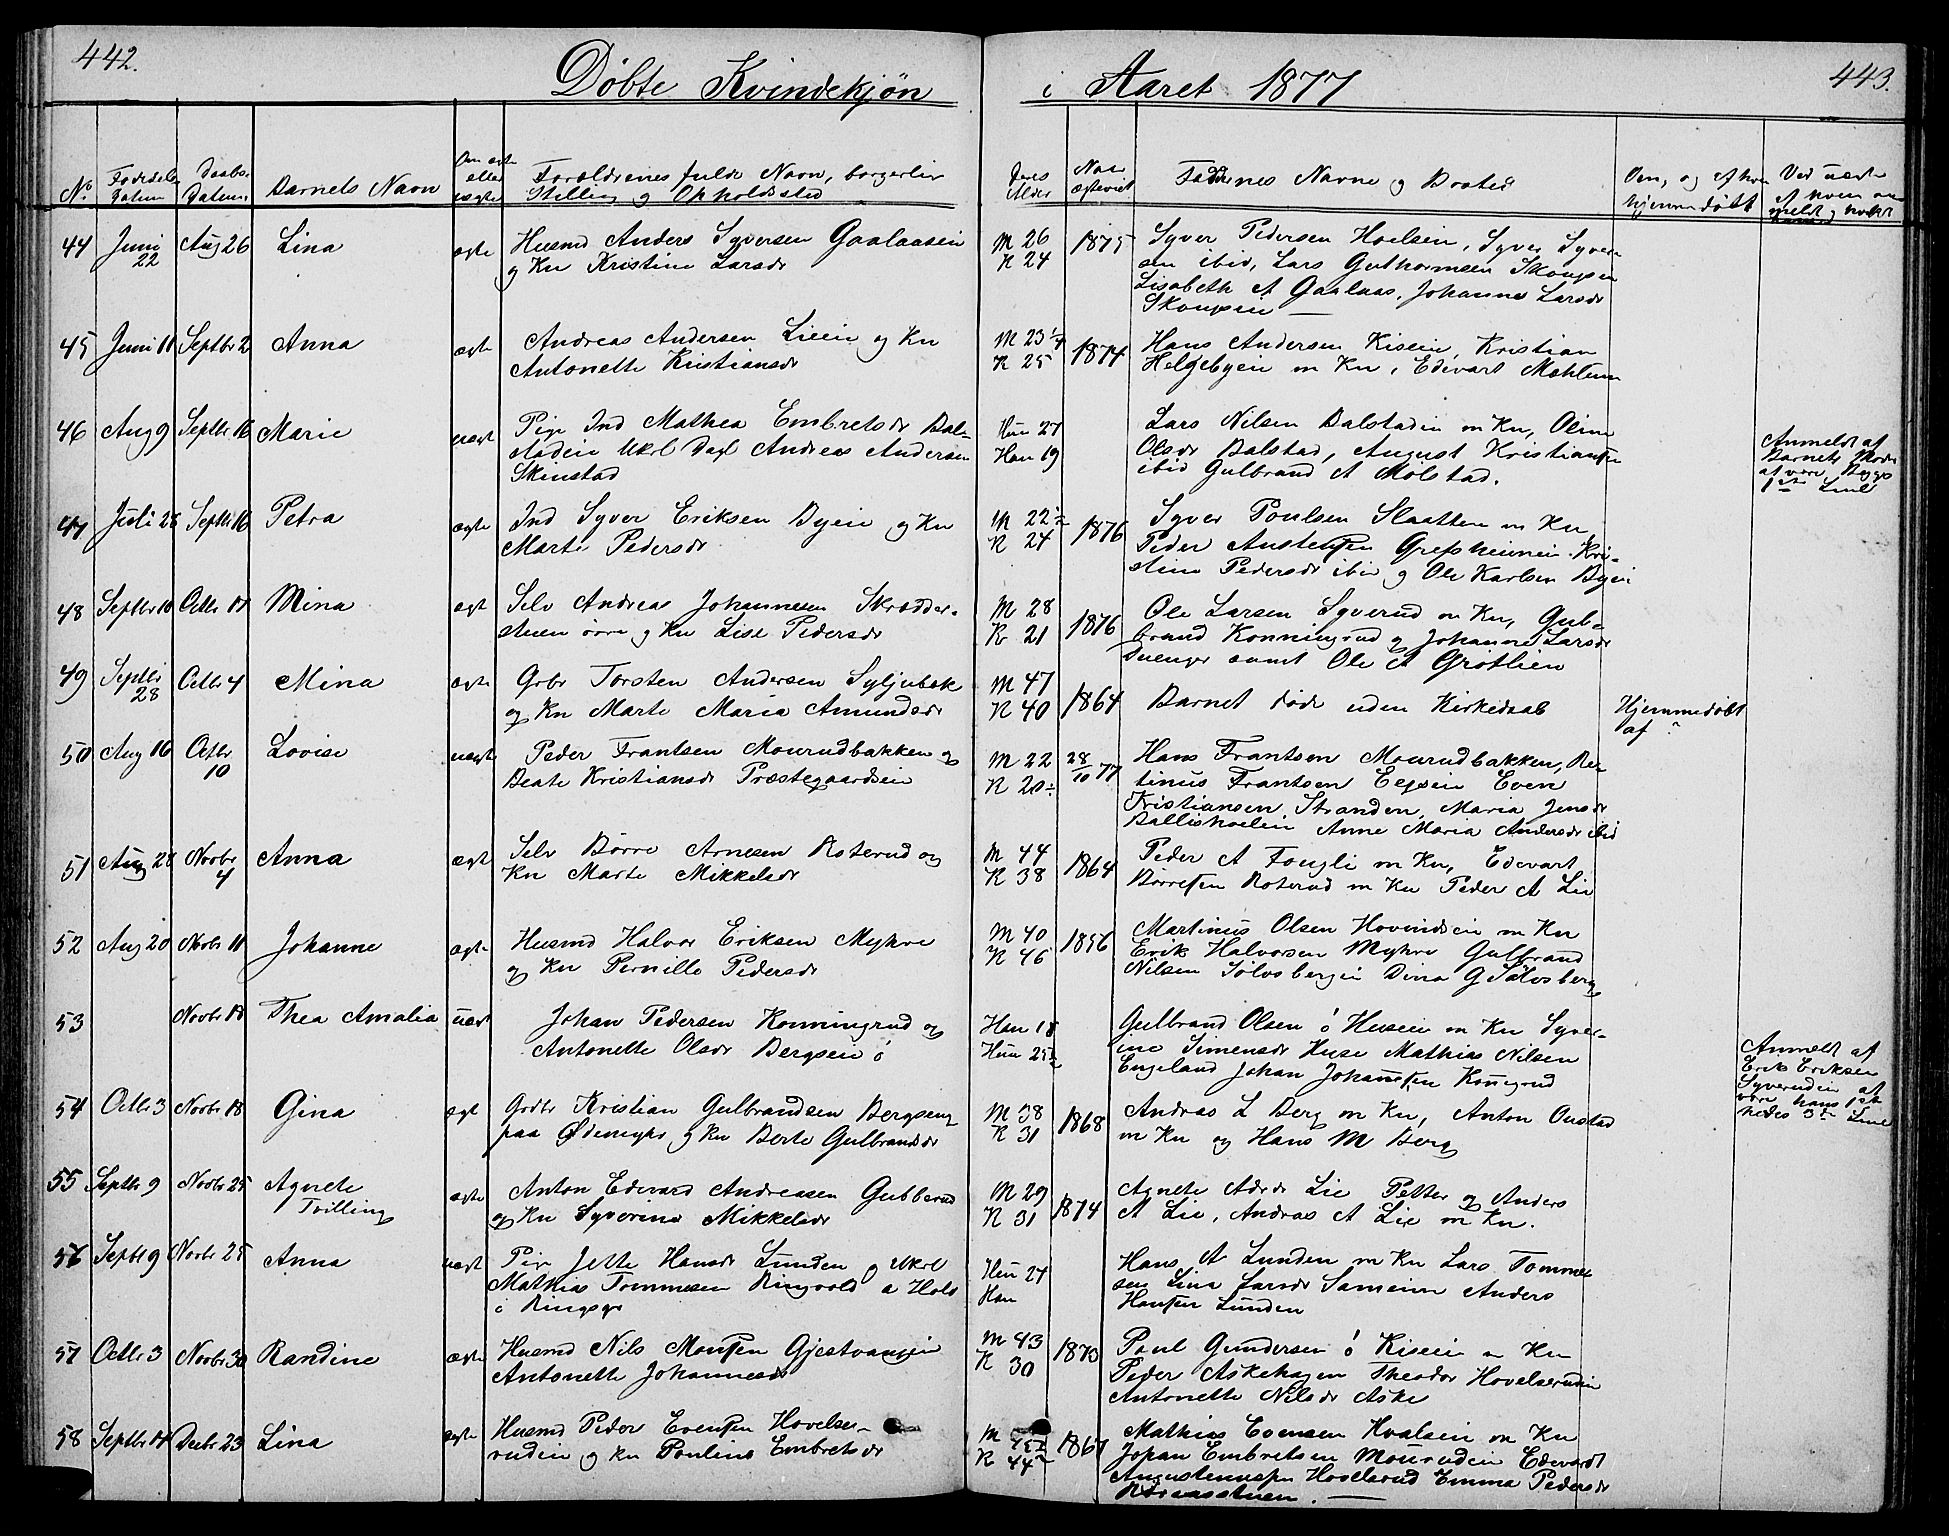 442.
Döbte Kvindekjøn
i Aaret 1877
443.
No
Födsels
Datum
Daabs
Datum
Barnets Navn
Om ægte
eller
uægte
Forældrenes fulde Navn, borgerlig
Stilling og Opholdssted
Deres
Alder
Naar
ægteviet
Faddernes Navne og Bosted
Om, og af hvem
hjemmedöbt
Ved uægte
af hvem an
meldt og
44 Juni 22 Aug 26 Lina ægte
Husmd Anders Syversen Gaalaaseie
og Kn Kristine Larsdr
M 26
K 24
1875
Syver Pedersen Hoelseie, Syver Syver-
sen ibid, Lars Guthormsen Skougseie
Lisabeth A Gaalaas, Johanne Larsdr
Skougseie
45 Juni 11 Septbr 2 Anna ægte
Andreas Andersen Lieeie og Kn
Antonette Kristiansdr
M 23 1/4
K 25
1874
Hans Andersen Kiseie, Kristian
Helgebyeie m Kn, Edevart
46 Aug 9 Septbr 16 Marie uægt
Pige Ind Mathea Embretsdr Bal-
stadeie Ukrl Dagl Andreas Andersen
Skinstad
Hun 27
Han 19
Lars Nilsen Balstadeie m Kn, Oline
Olsdr Balstad, August Kristiansen
ibid Gulbrand A Molstad.
Anmeldt af
Barnets Moder
at være Begges
1ste Leiel
47 Juli 28 Septbr 16 Petra ægte
Ind Syver Eriksen Byeie og Kn
Marte Pedersdr
M 22 1/2
K 24
1876
Syver Poulsen Slaatten m Kn
Peder Austensen Grefsheimeie Kri-
stine Pedersdr ibid og Ole Karlsen Byeie
48 Septbr 10 Octbr 14 Mina ægt
Selv Andreas Johannesen Skrædder-
stuen övre og Kn Lise Pedersdr
M 28
K 21
1876
Ole Larsen Syverud m Kn, Gul-
brand Konningrud og Johanne Larsdr
samt Ole A Grötlien
49 Septbr 28 Octbr 4 Mina ægte
Grbr Torsten Andersen Syljubæk
og Kn Marte Maria Amundsdr
M 47
K 40
1864
Barnet döde uden Kirkedaab
Hjemmedöbt
af ?
50 Aug 16 Octbr 10 Lovise uægt
Peder Frantsen Mourudbakken og
Beate Kristiansdr Præstegaardseie
M 22
K 20
28/10 77
Hans Frantsen Mourudbakken, Ber-
tinus Frantsen Eegseie Even
Kristiansen Stranden, Maria Jensdr
Balliskoeleie Anne Maria Andersdr ibid
51 Aug 28 Novbr 4 Anna ægt
Selv Börre Arnesen Roterud og
Kn Marte Mikkelsdr
M 44
K 38
1864
Peder A Fougli m Kn, Edevart
Börresen Roterud m Kn Peder A Lie
52 Aug 20 Novbr 11 Johanne ægte
Husmd Halvor Eriksen Myhre
og Kn Pernille Pedersdr
M 40
K 46
1856
Martinus Olsen Hovindseie m Kn
Erik Halvorsen Myhre Gulbrand
Nilsen Sölvsbergeie Dina G Sölvsberg
53 Novbr 18 Thea Amalia uægt
Johan Pedersen Konningrud og
Antonette Olsdr Bergseie ö
Han 18
Hun 25 1/2
Gulbrand Olsen ö Huseie m Kn Syver-
ine Simensdr Huse Mathias Nilsen
Engeland Johan Johannesen Konegrud
Anmeldt af
Erik Eriksen
Syverudeie at
være hans 1ste
hedes 3de Leiel
54 Octbr 3 Novbr 18 Gina ægt
Grdbr Kristian Gulbrandsen Bergseng
paa Ödemyhr og Kn Berte Gulbrandsdr
M 38
K 31
1868
Andreas L Berg m Kn, Anton Oustad
m Kn og Hans M Berg
55 Septbr 9 Novbr 25 Agnete
Tvilling ægte
Anton Edevard Andreasen Gubberud
og Kn Syverine Mikkelsdr
M 29
K 31
1874
Agnete Adsdr Lie Petter og Anders
A Lie, Andreas A Lie m Kn.
56 Septbr 9 Novbr 25 Anna uægt
Pige Jette Hansdr Lunden og Ukrl
Mathias Tommesen Ringvold a Hols
i Ringsgr
Hun 24
Han
Hans A Lunden m Kn Lars Tommes-
sen Lina Larsdr Anders
Hansen Lunden
57 Octbr 3 Novbr 30 Randine ægte
Husmd Nils Monsen Gjestvangeie
Antonette Johannesdr
M 43
K 30
1873
Poul Gundersen ö Kiseie m Kn
Peder Askehagen Theodor Hovelserudeie
Antonette Nilsdr Aske
58 Septbr 14 Decbr 23 Lina ægte
Husmd Peder Evensen Hovelse-
rudeie og Kn Pouline Embretsdr
M 45 1/2
K 44
1867
Mathias Evensen Hvalseie m Kn
Johan Embretsen Mourudeie Edevardt
Hovelserud Emma Pedersdr